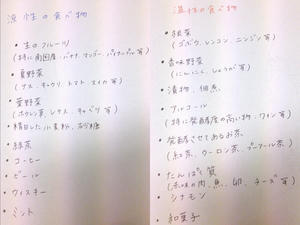 涼性の食べ物
・生のフルーツ
(特に南国産・バナナ、マンゴー、パイナップル等)
・夏野菜
(ナス、キュウリ、トマト、スイカ 等)
・葉野菜
(ホウレン草、レタス、キャベツ 等)
・精白した小麦粉、砂糖
・緑茶
・コーヒー
・ビール
・ウィスキー
・ミント
温性の食べ物
・根菜
(ゴボウ、レンコン、ニンジン等)
・香味野菜
(にんにく、しょうが 等)
・漬物、佃煮
・アルコール
(特に発酵度の高い物、ワイン等)
・発酵させてあるお茶
(紅茶、ウーロン茶、プーアール茶)
・たんぱく質
(赤味の肉、魚、卵、チーズ 等)
・シナモン
・和菓子